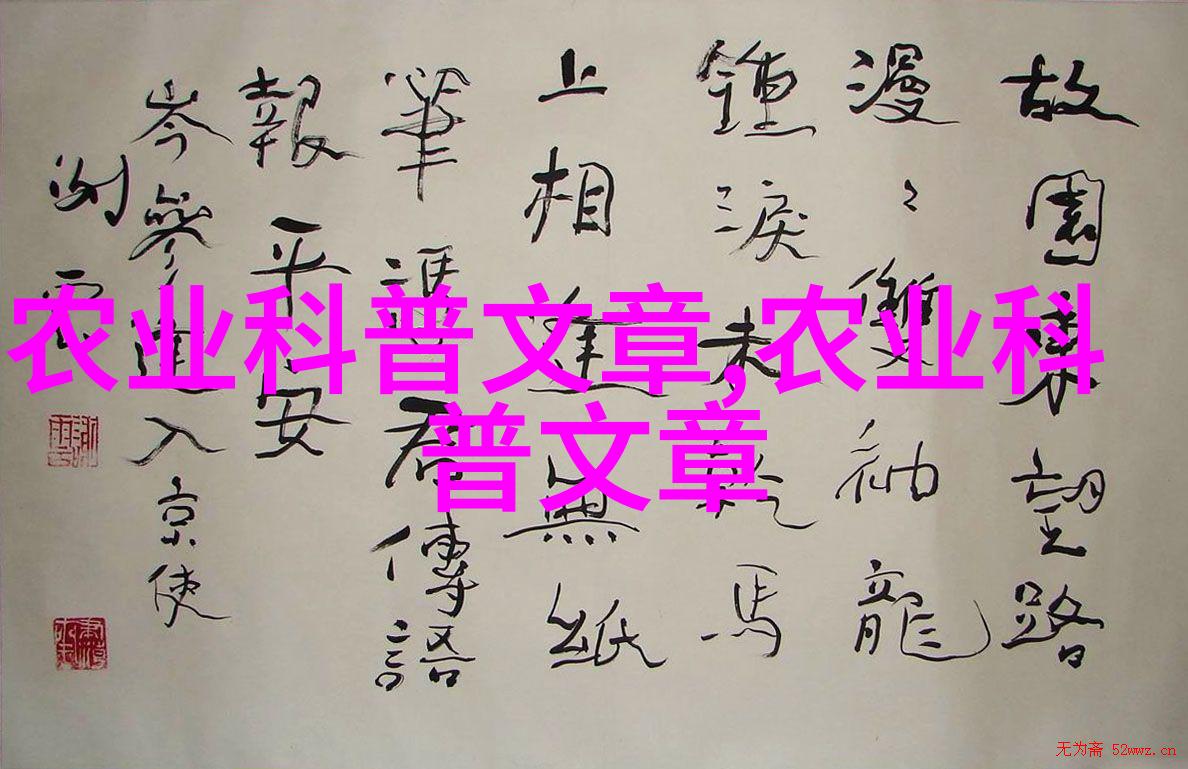 故園東望路
漫〻雙袖龍
鍾淚未乾馬
上相逢無紙
筆憑君傳語
報平安
岑參逢入京使
謝雲
农业科普文章,农业科
普文章
无为斋 52wwz.cn